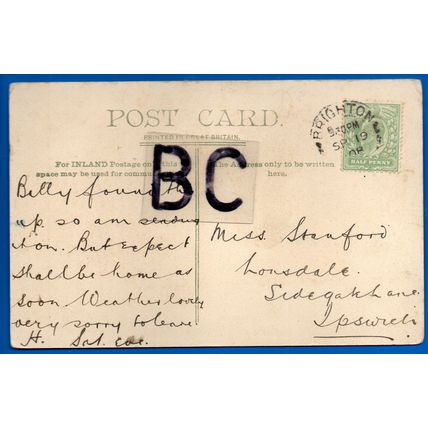 POST CARD.
PRINTED IN GREAT BRITAIN.
For INLAND Postage only this
space may be used for communi
The Address only to be written
here.
BC
BRIGHTON
8.30PM
SP 19
08
HALF PENNY
Billy found th
up so am sending
it on. But expect
shall be home as
soon Weather lovely
very sorry to leave
H. Sat. eve.
Miss Stanford
Lonsdale.
Sidegate Lane
Ipswich